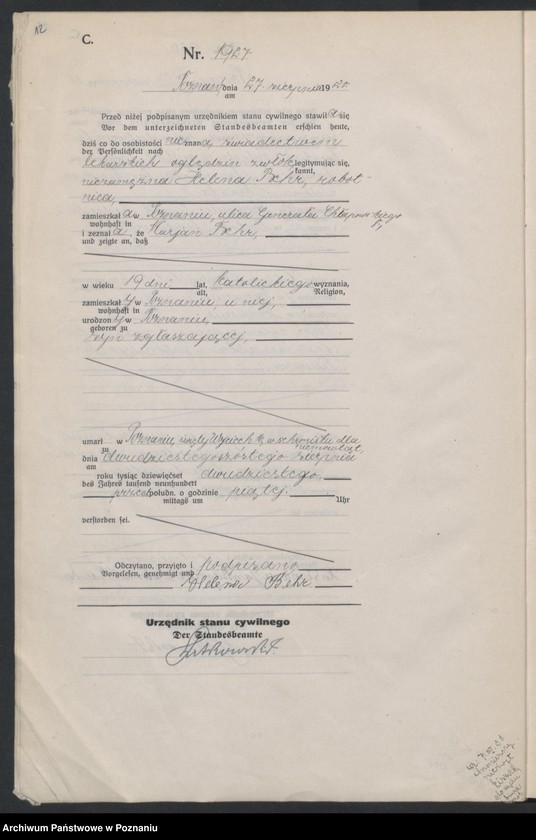 12
C.
Nr. 1927
Poznań, dnia 27. sierpnia 1920.
am
Przed niżej podpisanym urzędnikiem stanu cywilnego stawił a się
Vor dem unterzeichneten Standesbeamten erschien heute,
dziś co do osobistości nieznana, świadectwem
der Persönlichkeit nach
lekarskich oględzin zwłok legitymując się,
kannt,
niezamężna Helena Behr, robot-
nica,
zamieszkał a w Poznaniu, ulica Generała
wohnhaft in
i zeznał a, że Marjan Behr,
und zeigte an, daß
w wieku 19 dni lat, katolickiego wyznania,
alt, Religion,
zamieszkał y w Poznaniu, u niej,
wohnhaft in
urodzon y w Poznaniu,
geboren zu
syn zgłaszającej,
umarł w Poznaniu w schronisku dla
zu niemowląt,
dnia dwudziestegoszóstego sierpnia
am
roku tysiąc dziewięćset dwudziestego,
des Jahres tausend neunhundert
przed południ. o godzinie piątej.
mittags um Uhr
verstorben sei.
Odczytano, przyjęto i podpisano
Vorgelesen, genehmigt und
Helena Behr
Urzędnik stanu cywilnego
Der Standesbeamte
Archiwum Państwowe w Poznaniu